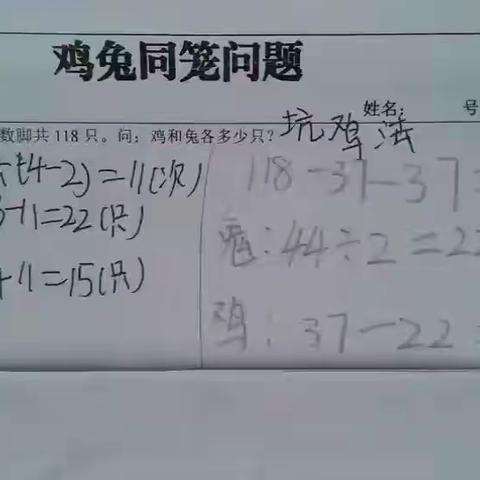 鸡兔同笼问题
姓名： 号
数脚共118只。问：鸡和兔各多少只？ 坑鸡法
(4-2)=11(次)
-11=22(只)
+11=15(只)
118-37-37
兔：44÷2=22
鸡：37-22